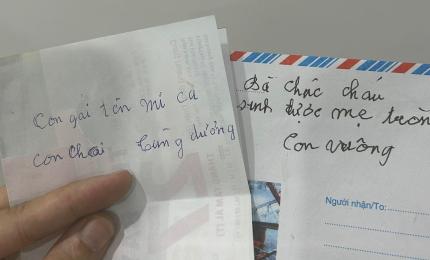 Con gái tên mi ca
con chai tùng dương
Bà chúc cháu
sinh được mẹ tròn
Con vuông
Người nhận/To: